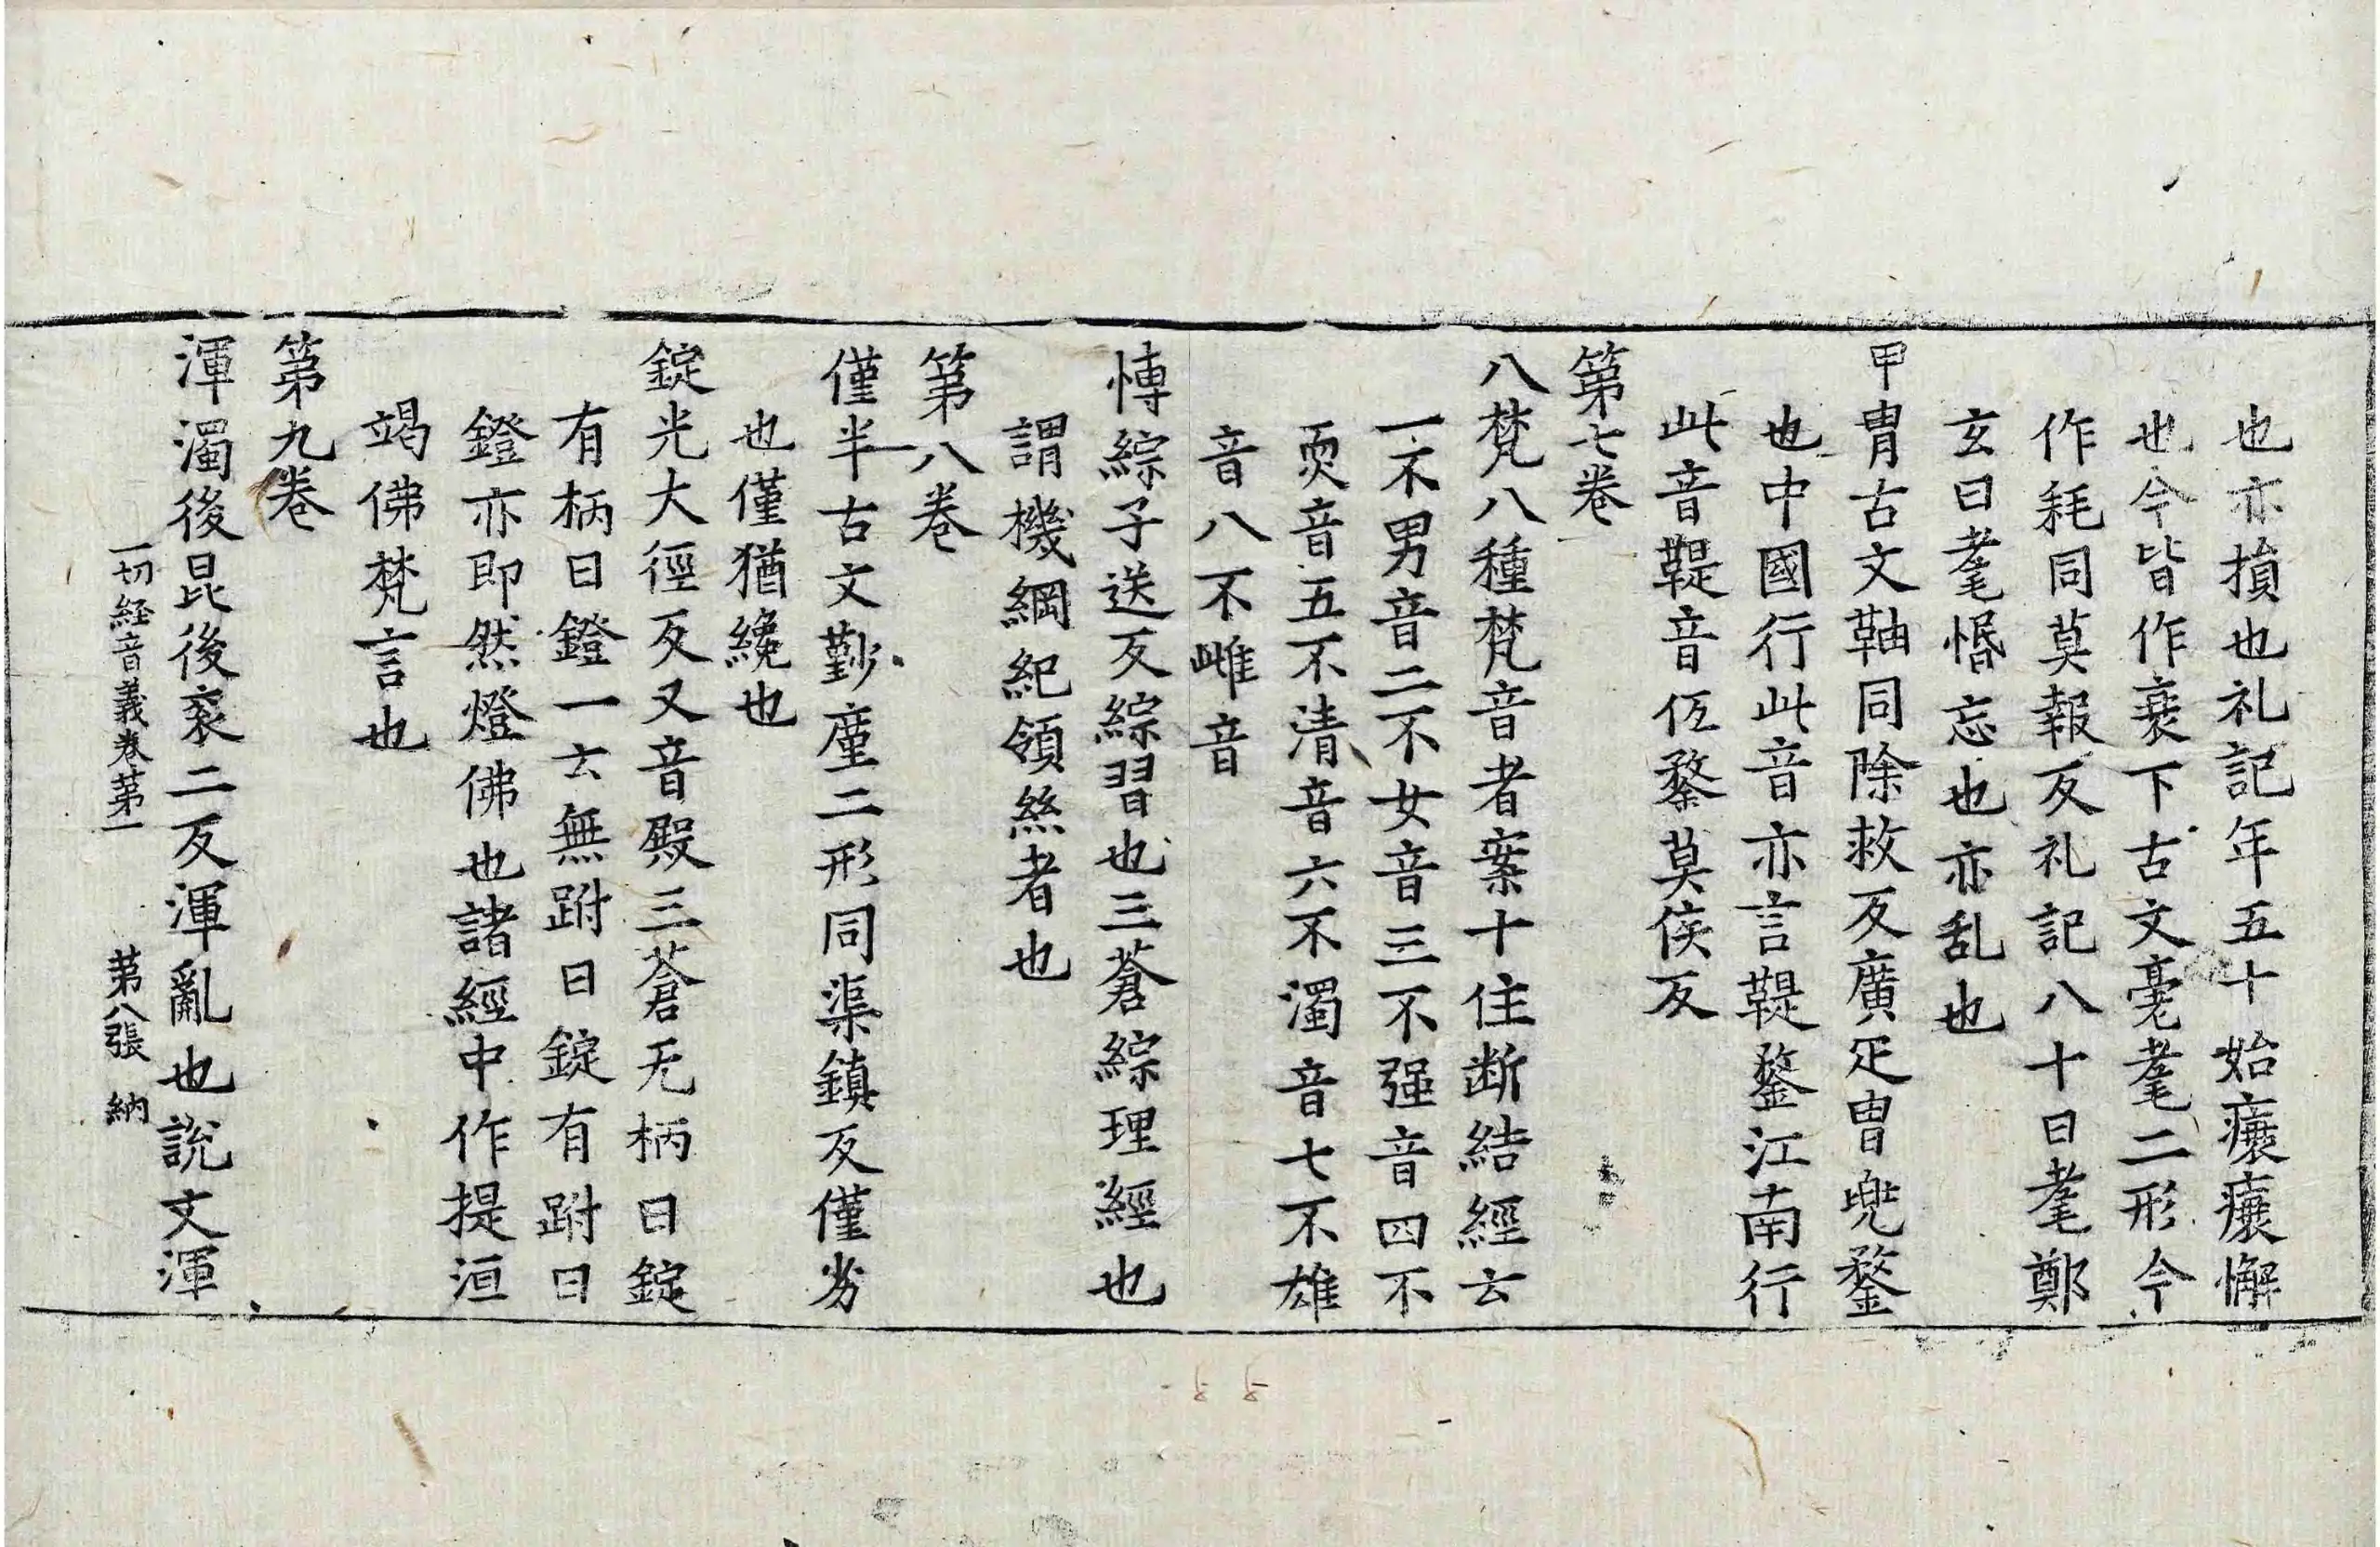 也亦損也礼記年五十始瘻瘻懈
也今皆作衰下古文薹耄二形今
作耗同莫報反礼記八十曰耄鄭
玄曰耄惛忘也亦乱也
甲冑古文䩜同除救反廣疋冑兜鍪
也中國行此音亦言鞮鍪江南行
此音鞮音低鍪莫侯反
第七卷
八梵八種梵音者案十住断結經云
一不男音二不女音三不强音四不
耎音五不清音六不濁音七不雄
音八不雌音
慱綜子送反綜習也三蒼綜理經也
謂機綱紀領絲者也
第八卷
僅半古文廑二形同渠鎮反僅劣
也僅猶纔也
錠光大徑反又音殿三蒼无柄曰錠
有柄曰鐙一云無跗曰錠有跗曰
鐙亦即然燈佛也諸經中作提洹
竭佛梵言也
第九卷
渾濁後昆後衮二反渾亂也説文渾
一切経音義卷第一 第八張 納